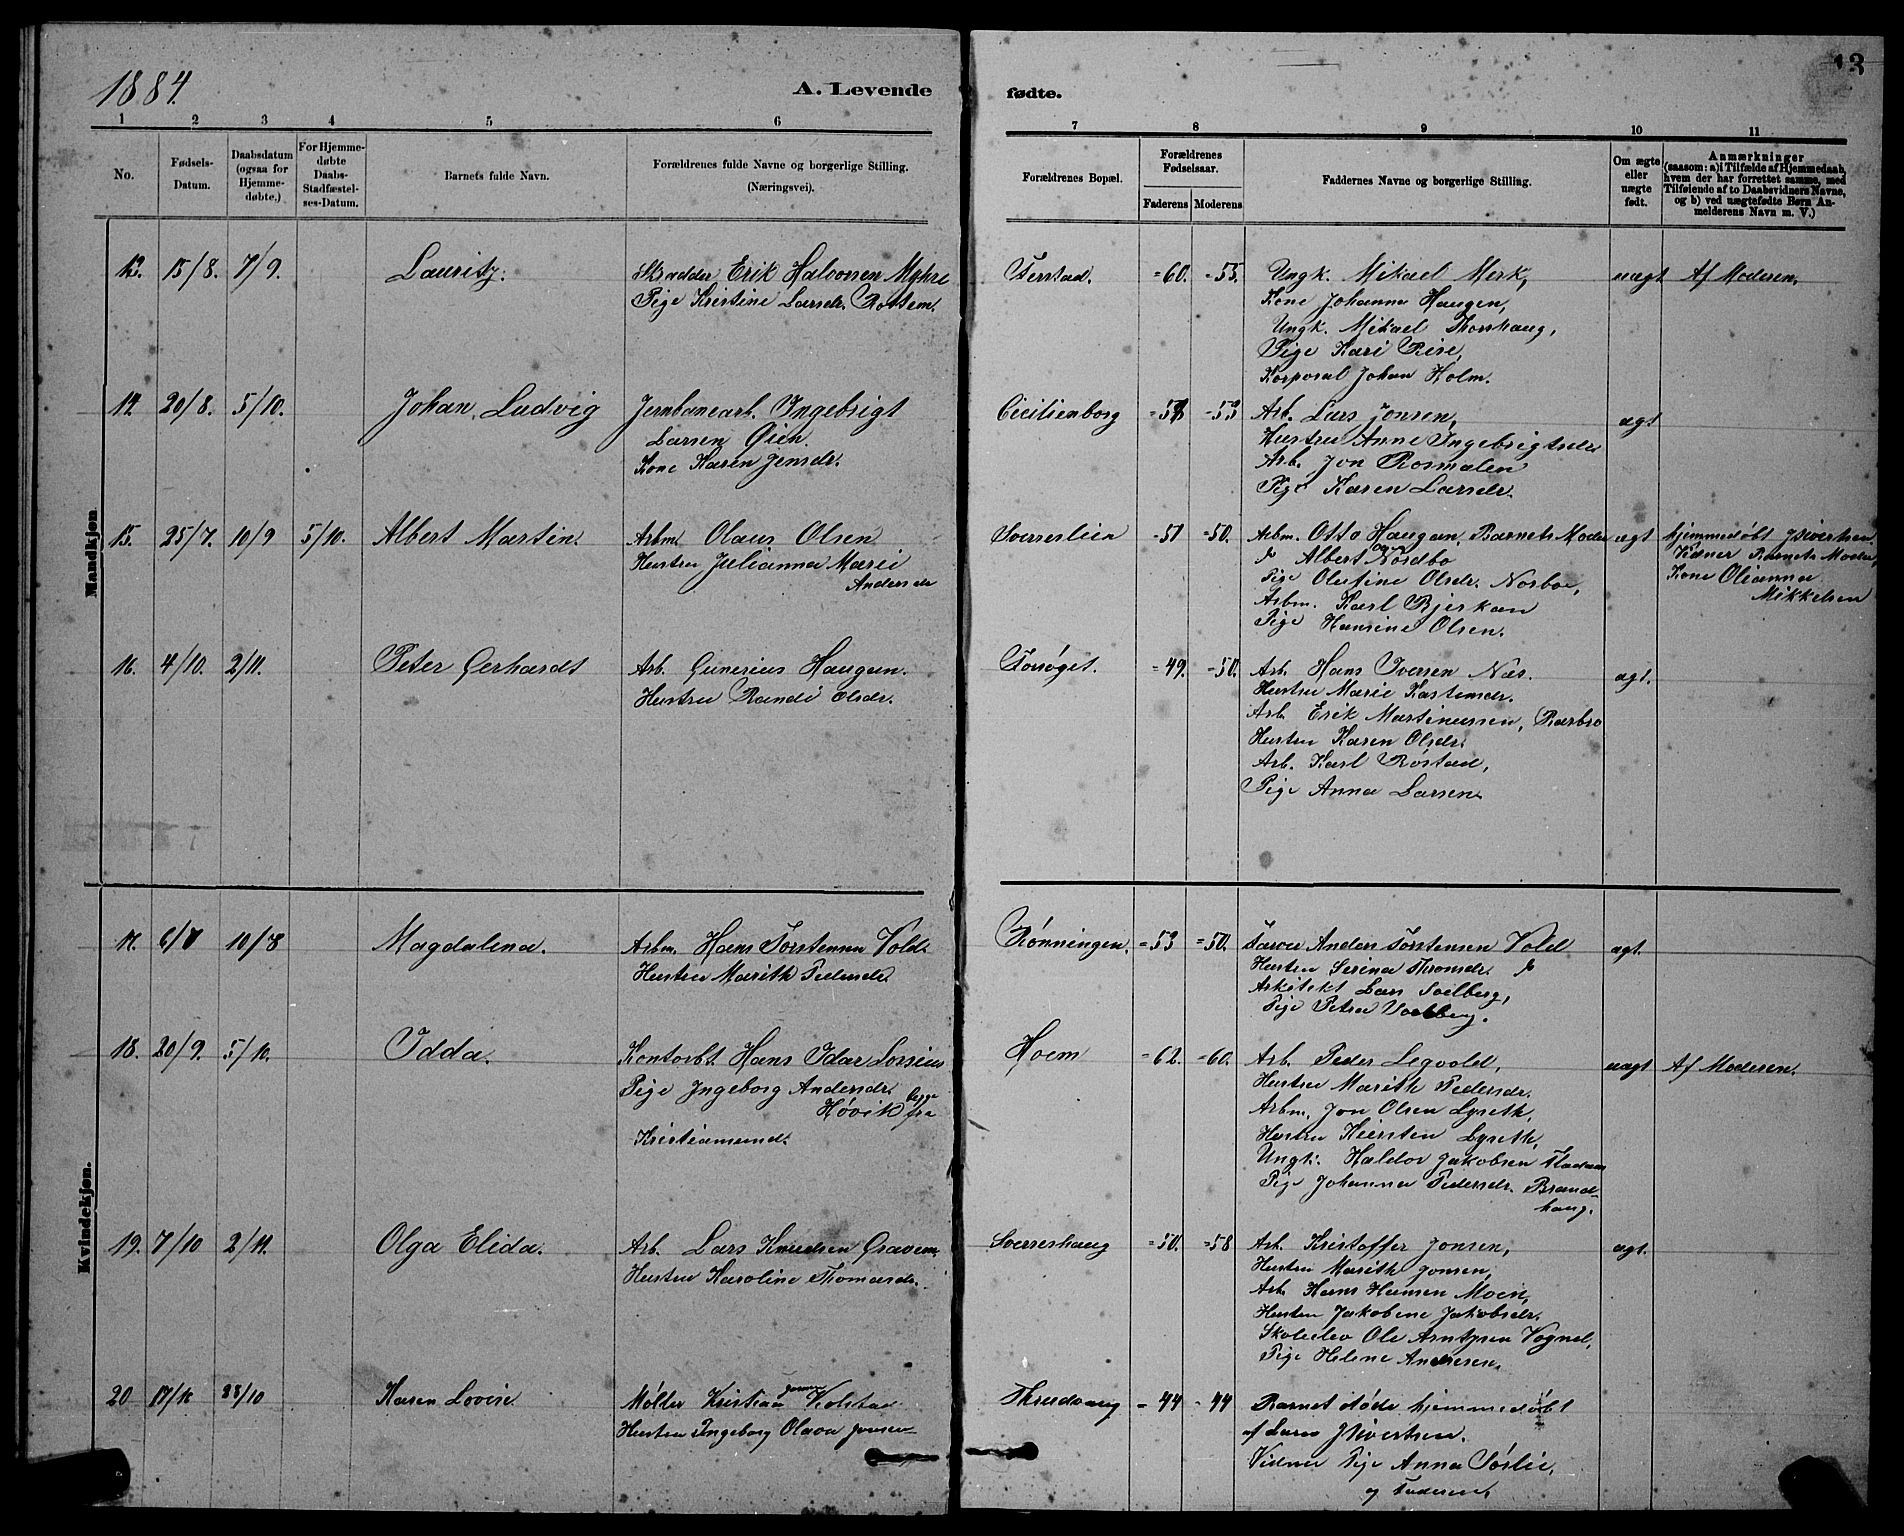 1884.
A. Levende
1 2 3 4 5 6
No.
Fødsels-
Datum.
Daabsdatum
(ogsaa for
Hjemme-
døbte.)
For Hjemme-
døbte
Daabs-
Stadfæstel-
ses-Datum.
Barnets fulde Navn.
Forældrenes fulde Navne og borgerlige Stilling.
(Næringsvei).
Mandkjøn
13. 15/8. 7/9. Lauritz. Skrædder Erik Halvorsen Myhre
Pige Kristine Larsdr. Rostem.
14. 20/8. 5/10. Johan Ludvig Jernbanearb. Ingebrigt
Larsen Øien.
Kone Karen Jensdr.
15. 25/7. 10/9 5/10. Albert Martin. Arbm. Olaus Olsen
Hustru Julianna Marei
Andersdr
16. 4/10. 2/11. Peter Gerhardt Arb. Gunerius Haugan.
Hustru Randi Olsdr.
Kvindekjøn.
17. 6/7 10/8 Magdalena. Arbm. Hans Torstensen Vold.
Hustru Marith Pedersdr.
18. 20/9. 5/10. Idda. Kontorbt. Hans Idar Lossius
Pige Ingeborg Andersdr.
Høvik begge fra
Kristiansund.
19. 7/10 2/11. Olga Elida. Arb. Lars Knudsen Graven
Hustru Karoline Thomasdr.
20 17/10 28/10 Karen Lovise Møller Kristian Jonsen Kolstad
Hustru Ingeborg Olava Jonsen
13
fødte.
7 8 9 10 11
Forældrenes Bopæl.
Forældrenes
Fødselsaar.
Faderens Moderens
Faddernes Navne og borgerlige Stilling.
Om ægte
eller
uægte
født.
Anmærkninger
(saasom: a) i Tilfælde af Hjemmedaab,
hvem der har forrettet samme, med
Tilføiende af to Daabsvidners Navne,
og b) ved uægtefødte Børn An-
melderens Navn m. V.)
Ferstad. =60. =55. Ungk. Mikael Merk, uægt Af Moderen.
Kone Johanna Haugen,
Ungk. Mikael Thorshaug,
Pige Kari Rise,
Korporal Johan Holm.
Cicilienborg =58 =53 Arb. Lars Jonsen, ægt
Hustru Anne Ingebrigtsdr
Arb. Jon Rosmalen
Pige Karen Larsdr.
Sverreslien =51 =50. Arbm. Otto Haugan, Barnets Moder ægt Hjemmedøbt J. Sivertsen.
Albert Nordbo Vidner Barnets Moder,
Pige Olufine Olsdr. Norboe, Kone Olianna
Arbm. Karl Bjerkan Mikkelsen
Pige Hansine Olsen.
Forsøget. =49. =50. Arb. Hans Iversen Næs. ægt.
Hustru Marie Karstensdr.
Arb. Erik Martinussen, Barbro
Hustru Karen Olsdr.
Arb. Karl Røstad,
Pige Anna Larsen.
Rønningen. =53 =50. Farver Anders Torstensen Vold ægt.
Hustru Serina Thronsdr.
Arkitekt Lars Solberg,
Pige Petra
Hoem =62. =60. Arb. Peder Legvold, uægt Af Moderen.
Hustru Marith Pedersdr.
Arbm. Jon Olsen Lyseth,
Hustru Kiersten Lyseth,
Ungk. Haldor Jakobsen
Pige Johanna Pedersdr. Brand-
haug.
Sverreshaug =50. =58 Arb. Kristoffer Jonsen, ægt.
Hustru Marith Jonsen,
Arb. Hans Hansen Moen,
Hustru Jakobine Jakobsdr.
Skolelev Ole Arntzen Vognil,
Pige Helene Andresen.
Thrudvang =44 =44 Barnet døde hjemmedøbt
af Lars J. Sivertsen.
Vidner Pige Anna Sørlie,
og Faderen.